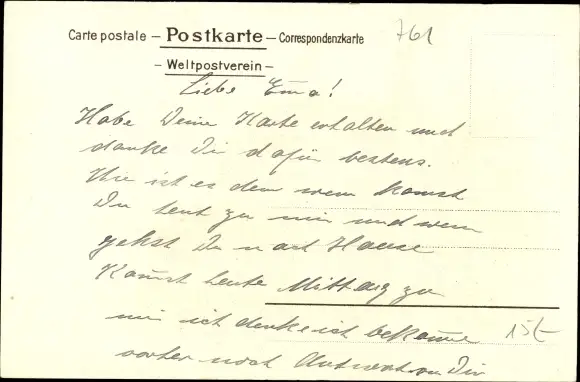 761
Carte postale – Postkarte – Correspondenzkarte
– Weltpostverein –
Liebe Ema!
Habe Deine Karte erhalten und
danke Dir dafür bestens.
Wie ist es den wen komst
Du heut zu mir und wen
gehst Du nach Hause
Kamst heute Mittag zu
mir ich denke ich bekome
vorher noch Antwort von Dir
15